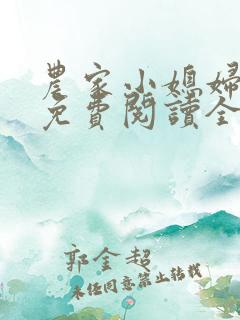 農家小媳婦
免費閱讀全
郭金超
未經同意禁止轉載